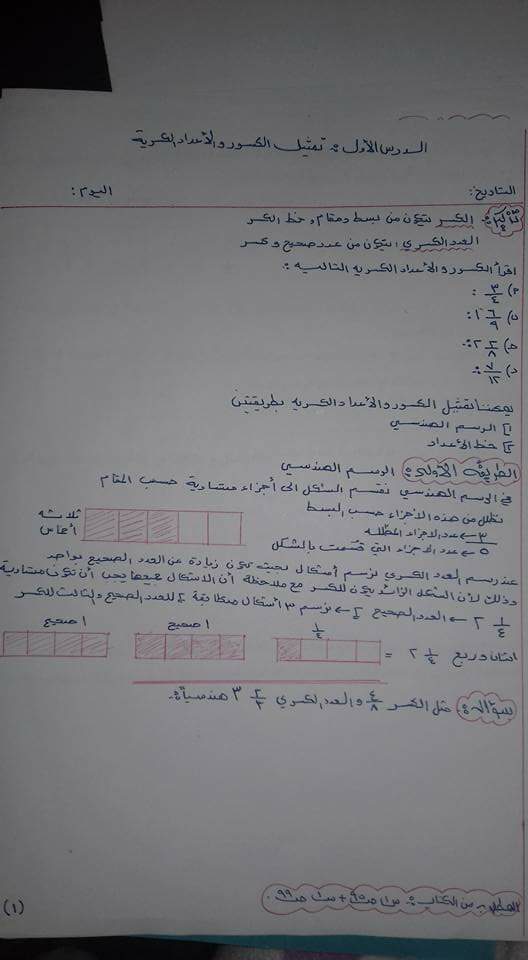 الدرس الأول: تمثيل الكسور والأعداد الكسرية
التاريخ: اليوم:
تذكير: الكسر يتكون من بسط ومقام وخط الكسر
العدد الكسري: يتكون من عدد صحيح وكسر
اقرأ الكسور والأعداد الكسرية التالية:
أ) ٣/٤ :
ب) ١ ٦/٩ :
ج) ٢ ٢/٨ :
د) ٧/١٢ :
يمكننا تمثيل الكسور والأعداد الكسرية بطريقتين
١] الرسم الهندسي
٢] خط الأعداد
الطريقة الأولى: الرسم الهندسي
في الرسم الهندسي نقسم الشكل الى أجزاء متساوية حسب المقام
نظلل من هذه الأجزاء حسب البسط
٣ ← عدد الأجزاء المظلله
٥ ← عدد الأجزاء التي قسمت بالشكل
ثلاثة أخماس
عند رسم العدد الكسري نرسم أشكال بحيث تكون زيادة عن العدد الصحيح بواحد
وذلك لأن الشكل الزائد يكون للكسر مع ملاحظة أن الأشكال جميعها يجب أن تكون متساوية
٢ ١/٤ ← العدد الصحيح ٢ ← نرسم ٣ أشكال متطابقة ٢ للعدد الصحيح والثالث للكسر
١/٤ ١ صحيح ١ صحيح
اثنان وربع ٢ ١/٤ =
سؤال: مثل الكسر ٤/٨ والعدد الكسري ٣ ٢/٢ هندسياً.
من الكتاب: س١ ص٩٥ + س١ ص٩٩
(١)